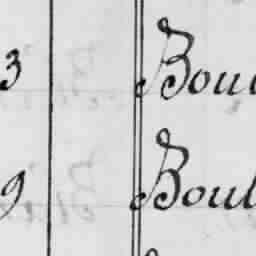 3 Bou
9 Boul